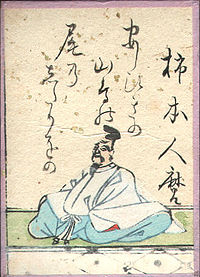 柿本人麿
あしひきの
山とりの
尾の
したりをの